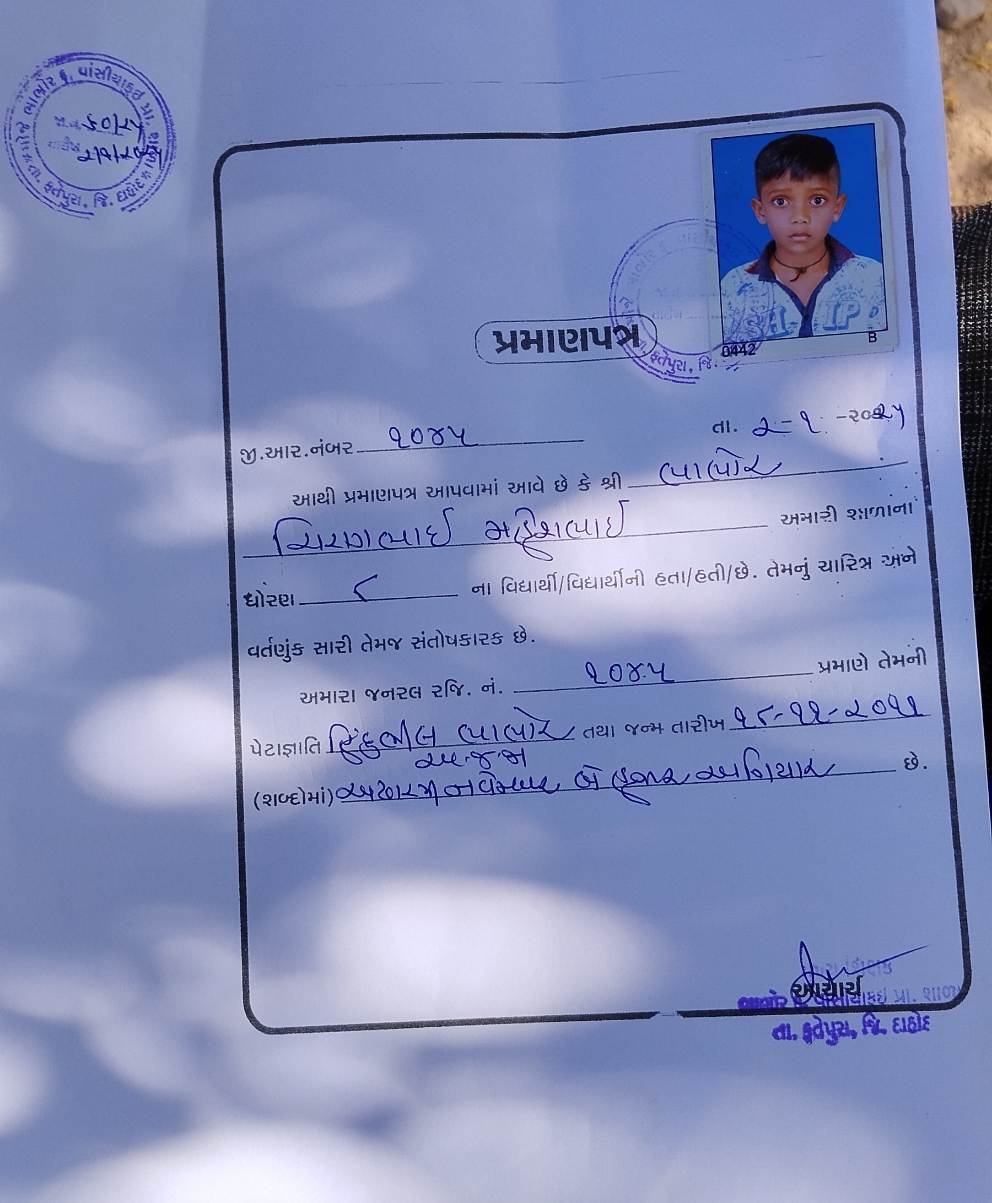 ભાભોર ફ. વાંસીયાકુઇ પ્રા. શાળા
જા.નં. ૬૦/૨૫
તારીખ ૨/૧/૨૦૨૫
તા. ફતેપુરા, જિ. દાહોદ
0442
B
પ્રમાણપત્ર
ફતેપુરા, જિ.
જી.આર.નંબર ૧૦૪૫ તા. ૨-૧-૨૦૨૫
આથી પ્રમાણપત્ર આપવામાં આવે છે કે શ્રી ભાભોર
ચિરાગભાઈ મહેશભાઈ અમારી શાળાનાં
ધોરણ ૮ ના વિદ્યાર્થી/વિદ્યાર્થીની હતા/હતી/છે. તેમનું ચારિત્ર અને
વર્તણુંક સારી તેમજ સંતોષકારક છે.
અમારા જનરલ રજિ. નં. ૧૦૪૫ પ્રમાણે તેમની
પેટાજ્ઞાતિ હિંદુભીલ ભાભોર તથા જન્મ તારીખ ૧૮-૧૧-૨૦૧૧
અ.જ.જા
(શબ્દોમાં) અઢારમી નવેમ્બર બે હજાર અગિયાર છે.
આચાર્ય
ભાભોર ફ. વાંસીયાકુઇ પ્રા. શાળા
તા. ફતેપુરા, જિ. દાહોદ